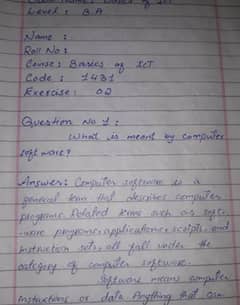 Level : B.A
Name :
Roll No :
Course : Basics of ICT
Code : 1431
Exercise : 02
Question No 1 :
What is meant by computer
software?
Answer: Computer software is a
general term that describes computer
programs. Related terms such as soft-
-ware programs, applications, scripts, and
instruction sets all fall under the
category of computer software.
Software means computer
instructions or data. Anything that can